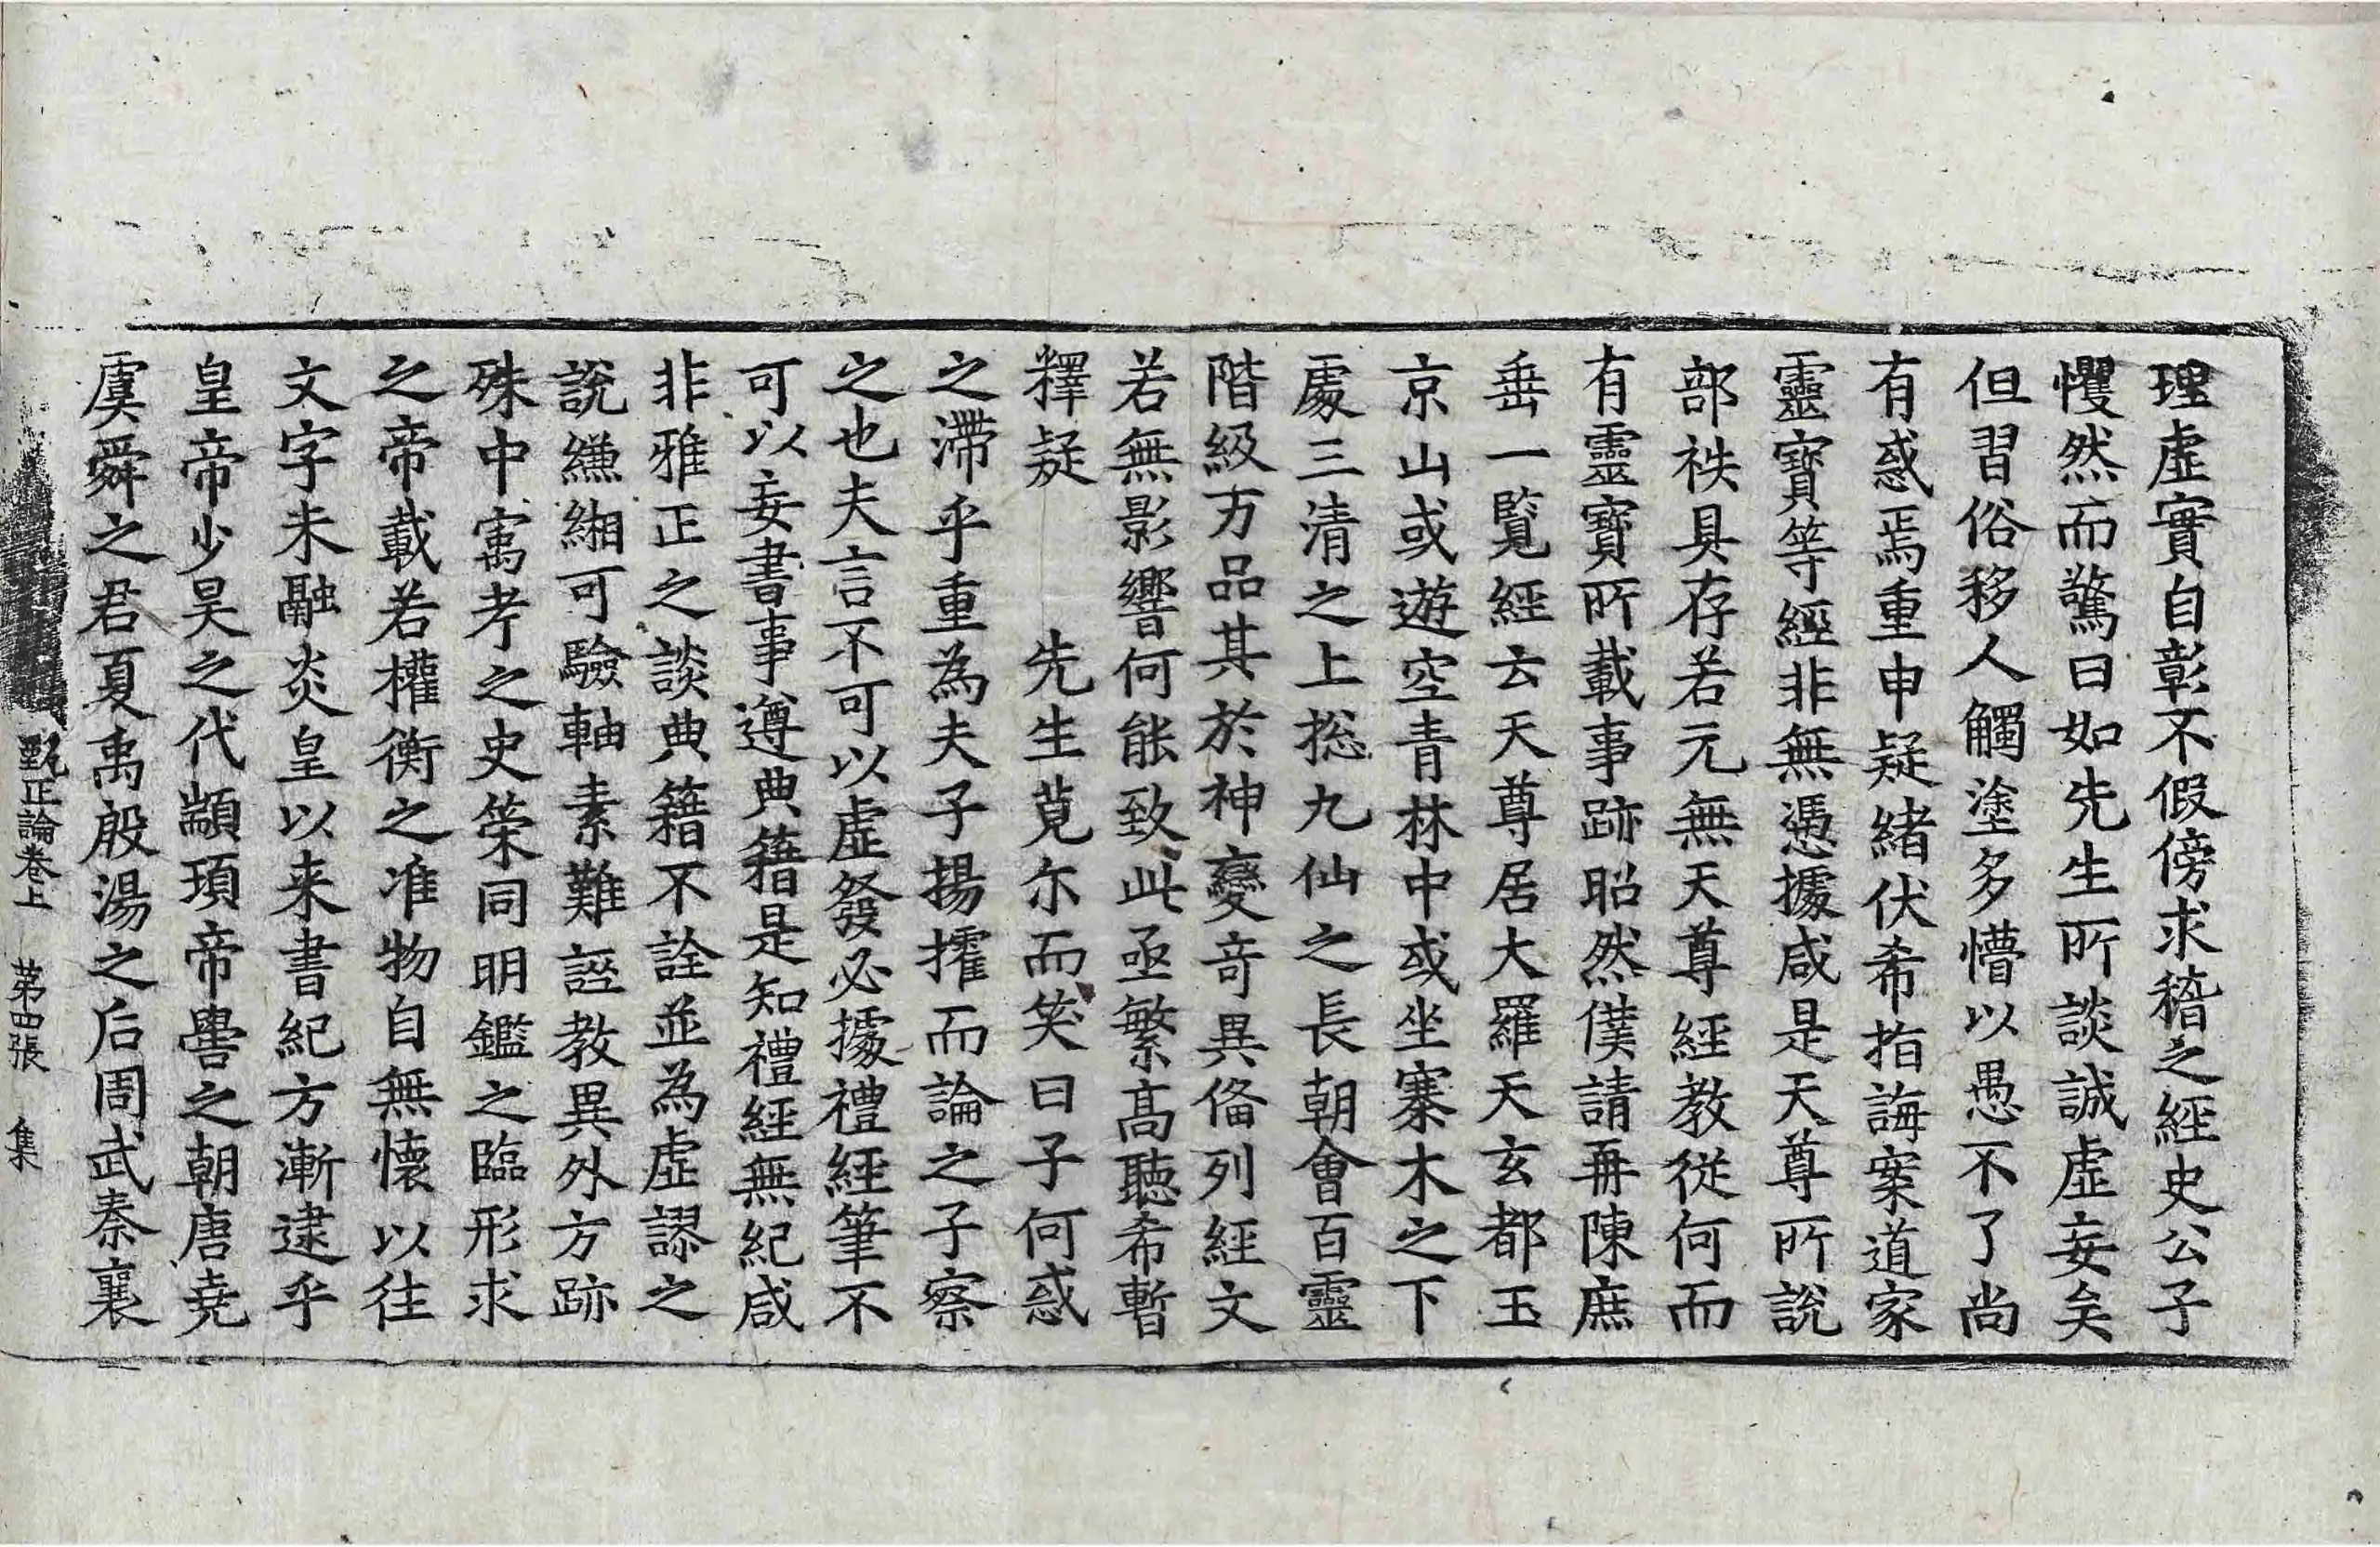 理虛實自彰不假傍求稽之經史公子
懼然而驚曰如先生所談誠虛妄矣
但習俗移人觸塗多懵以愚不了尚
有惑焉重申疑緒伏希指誨案道家
靈寶等經非無憑據咸是天尊所說
部袟具存若元無天尊經教從何而
有靈寶所載事跡昭然僕請再陳庶
垂一覧經云天尊居大羅天玄都玉
京山或遊空青林中或坐寨木之下
處三清之上捴九仙之長朝會百靈
階級方品其於神變奇異俻列經文
若無影響何能致此亟繁高聽希暫
釋疑　　先生莧尒而笑曰子何惑
之滯乎重為夫子揚搉而論之子察
之也夫言不可以虛發必據禮經筆不
可以妄書事遵典籍是知禮經無紀咸
非雅正之談典籍不詮並為虛謬之
說縑緗可驗軸素難誣教異外方跡
殊中寓考之史筞同明鑑之臨形求
之帝載若權衡之准物自無懷以往
文字未融炎皇以来書紀方漸逮乎
皇帝少昊之代顓頊帝嚳之朝唐堯
虞舜之君夏禹殷湯之后周武秦襄
甄正論卷上　第四張　集